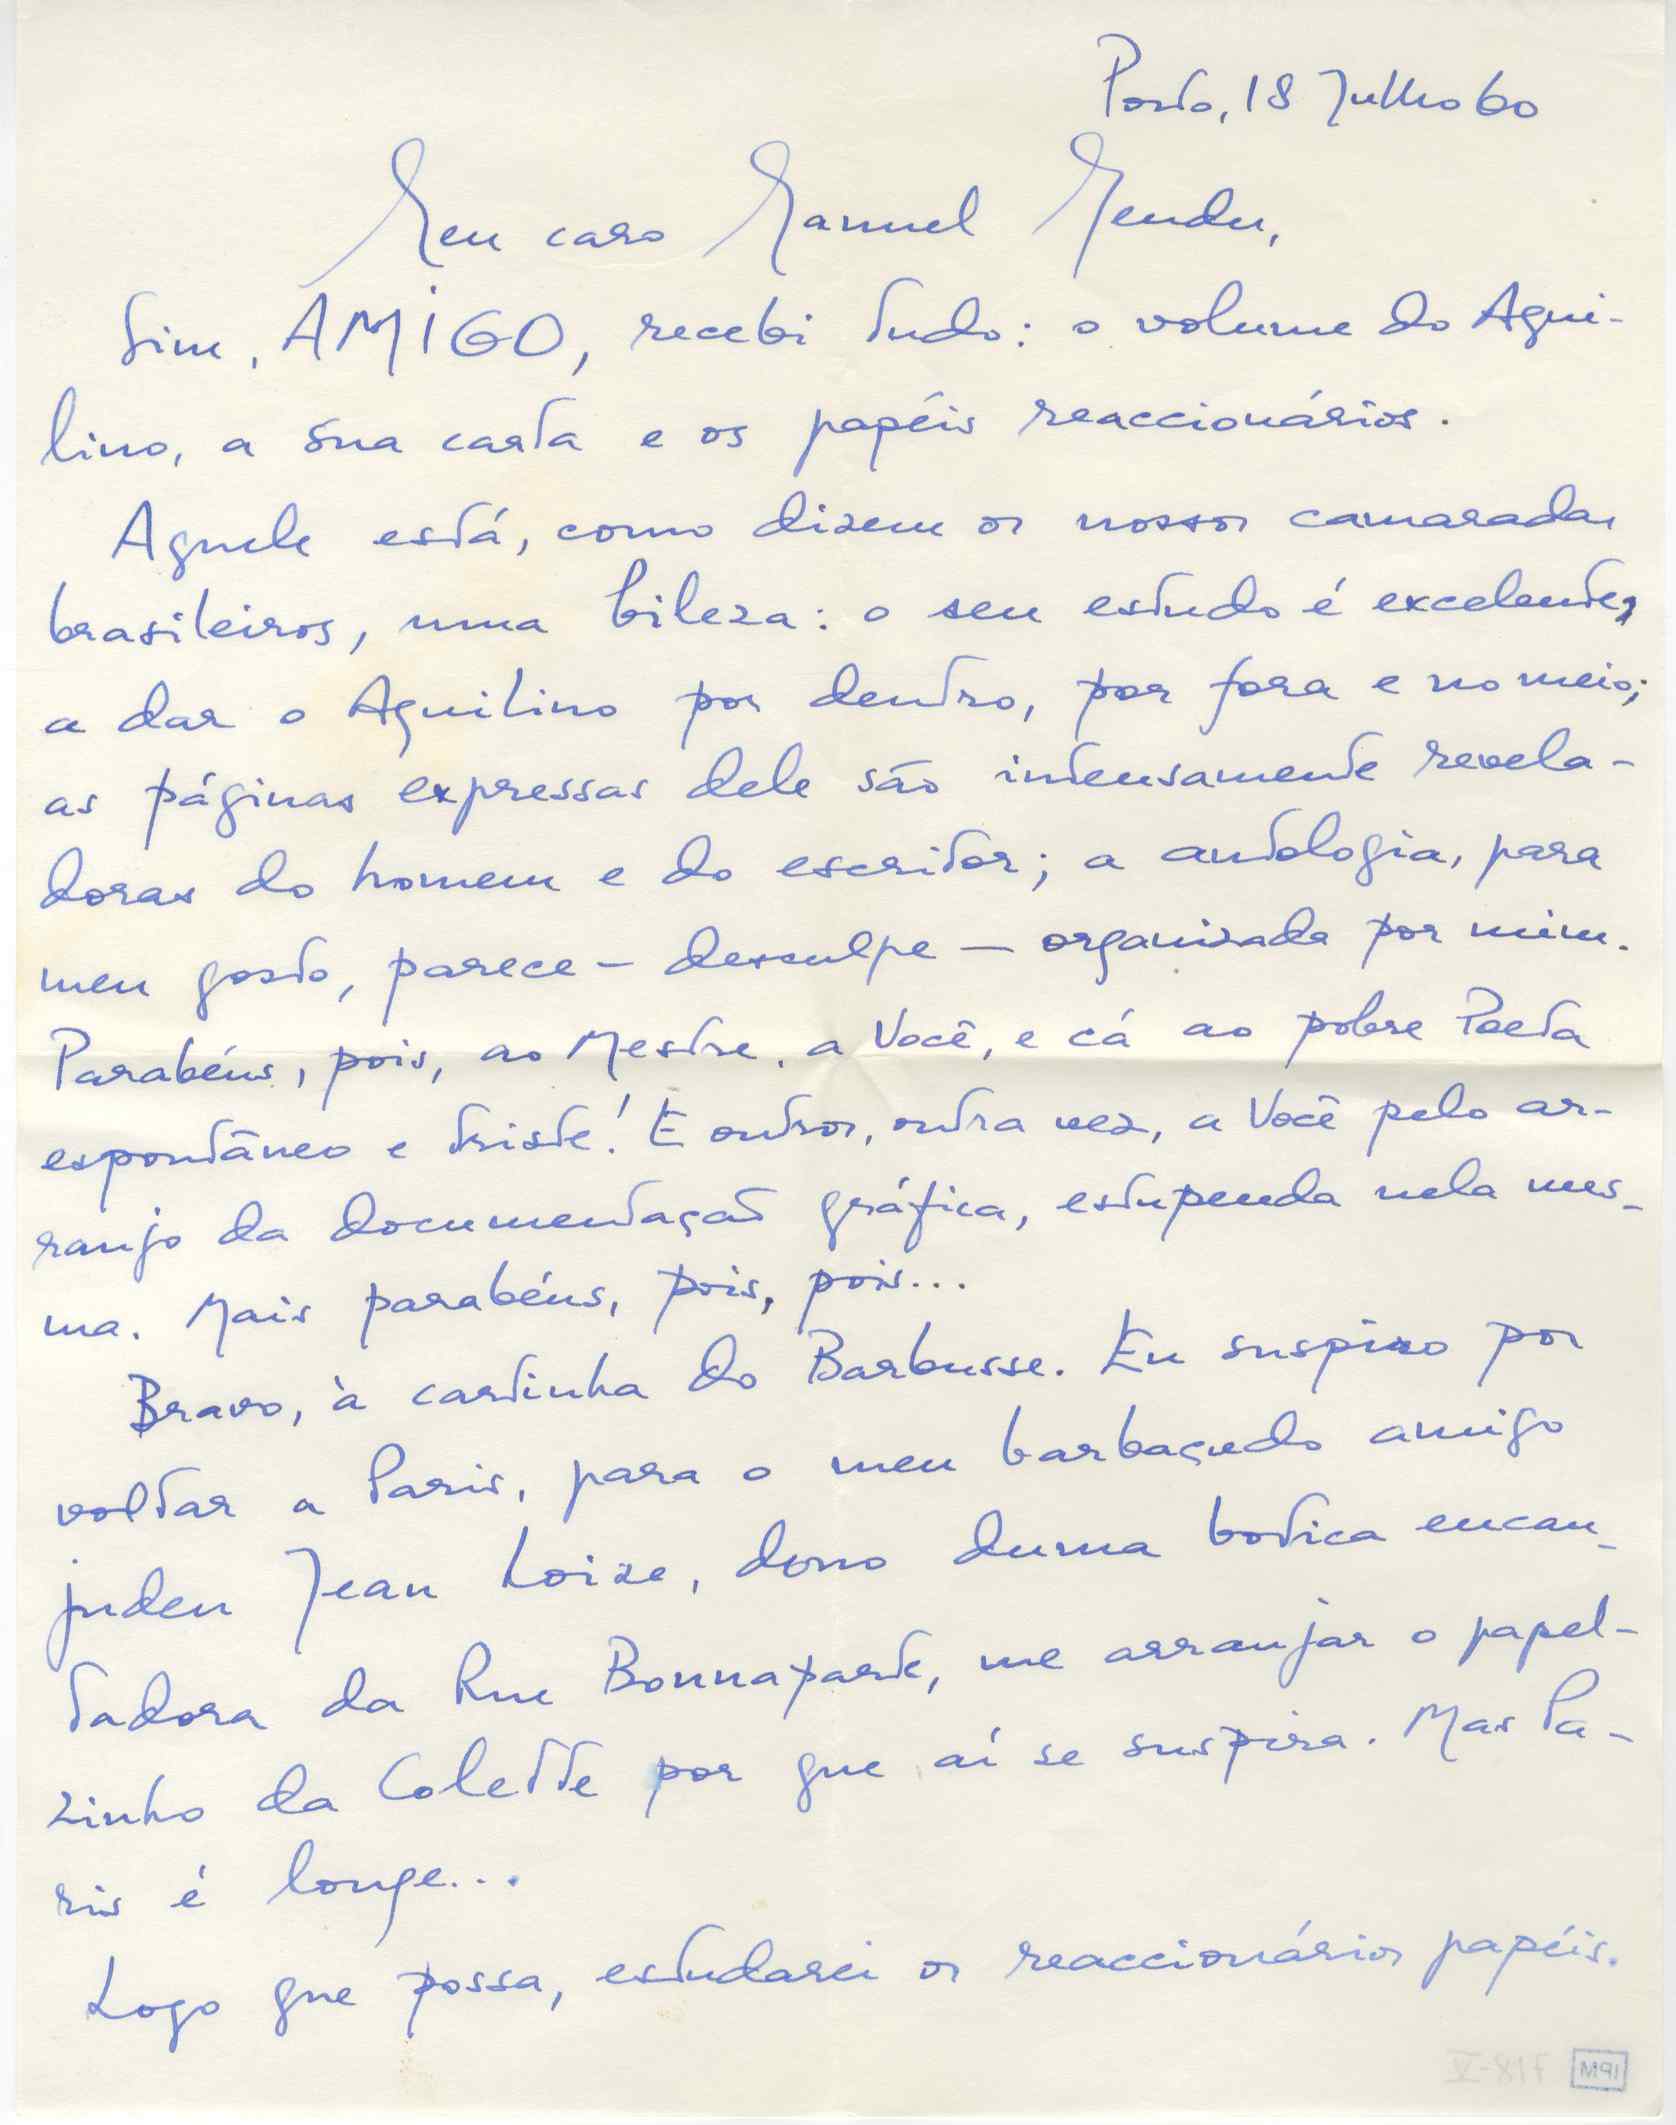 Porto, 18 Julho 60
Meu caro Manuel Mendes,
Sim, AMIGO, recebi tudo: o volume do Aqui-
lino, a sua carta e os papéis reaccionários.
Aquele está, como dizem os nossos camaradas
brasileiros, uma bileza: o seu estudo é excelente,
a dar o Aquilino por dentro, por fora e no meio;
as páginas expressas dele são intensamente revela-
doras do homem e do escritor; a antologia, para
meu gosto, parece – desculpe – organizada por mim.
Parabéns, pois, ao Mestre, a Você, e cá ao pobre Poeta
espontâneo e triste! E outros, outra vez, a Você pelo ar-
ranjo da documentação gráfica, estupenda nela mes-
ma. Mais parabéns, pois, pois...
Bravo, à cartinha do Barbusse. Eu suspiro por
voltar a Paris, para o meu barbaçudo amigo
judeu Jean Loize, dono duma botica encan-
tadora da Rue Bonnaparte, me arranjar o papel-
zinho da Colette por que aí se suspira. Mas Pa-
ris é longe...
Logo que possa, estudarei os reaccionários papéis.
IPM
718-V